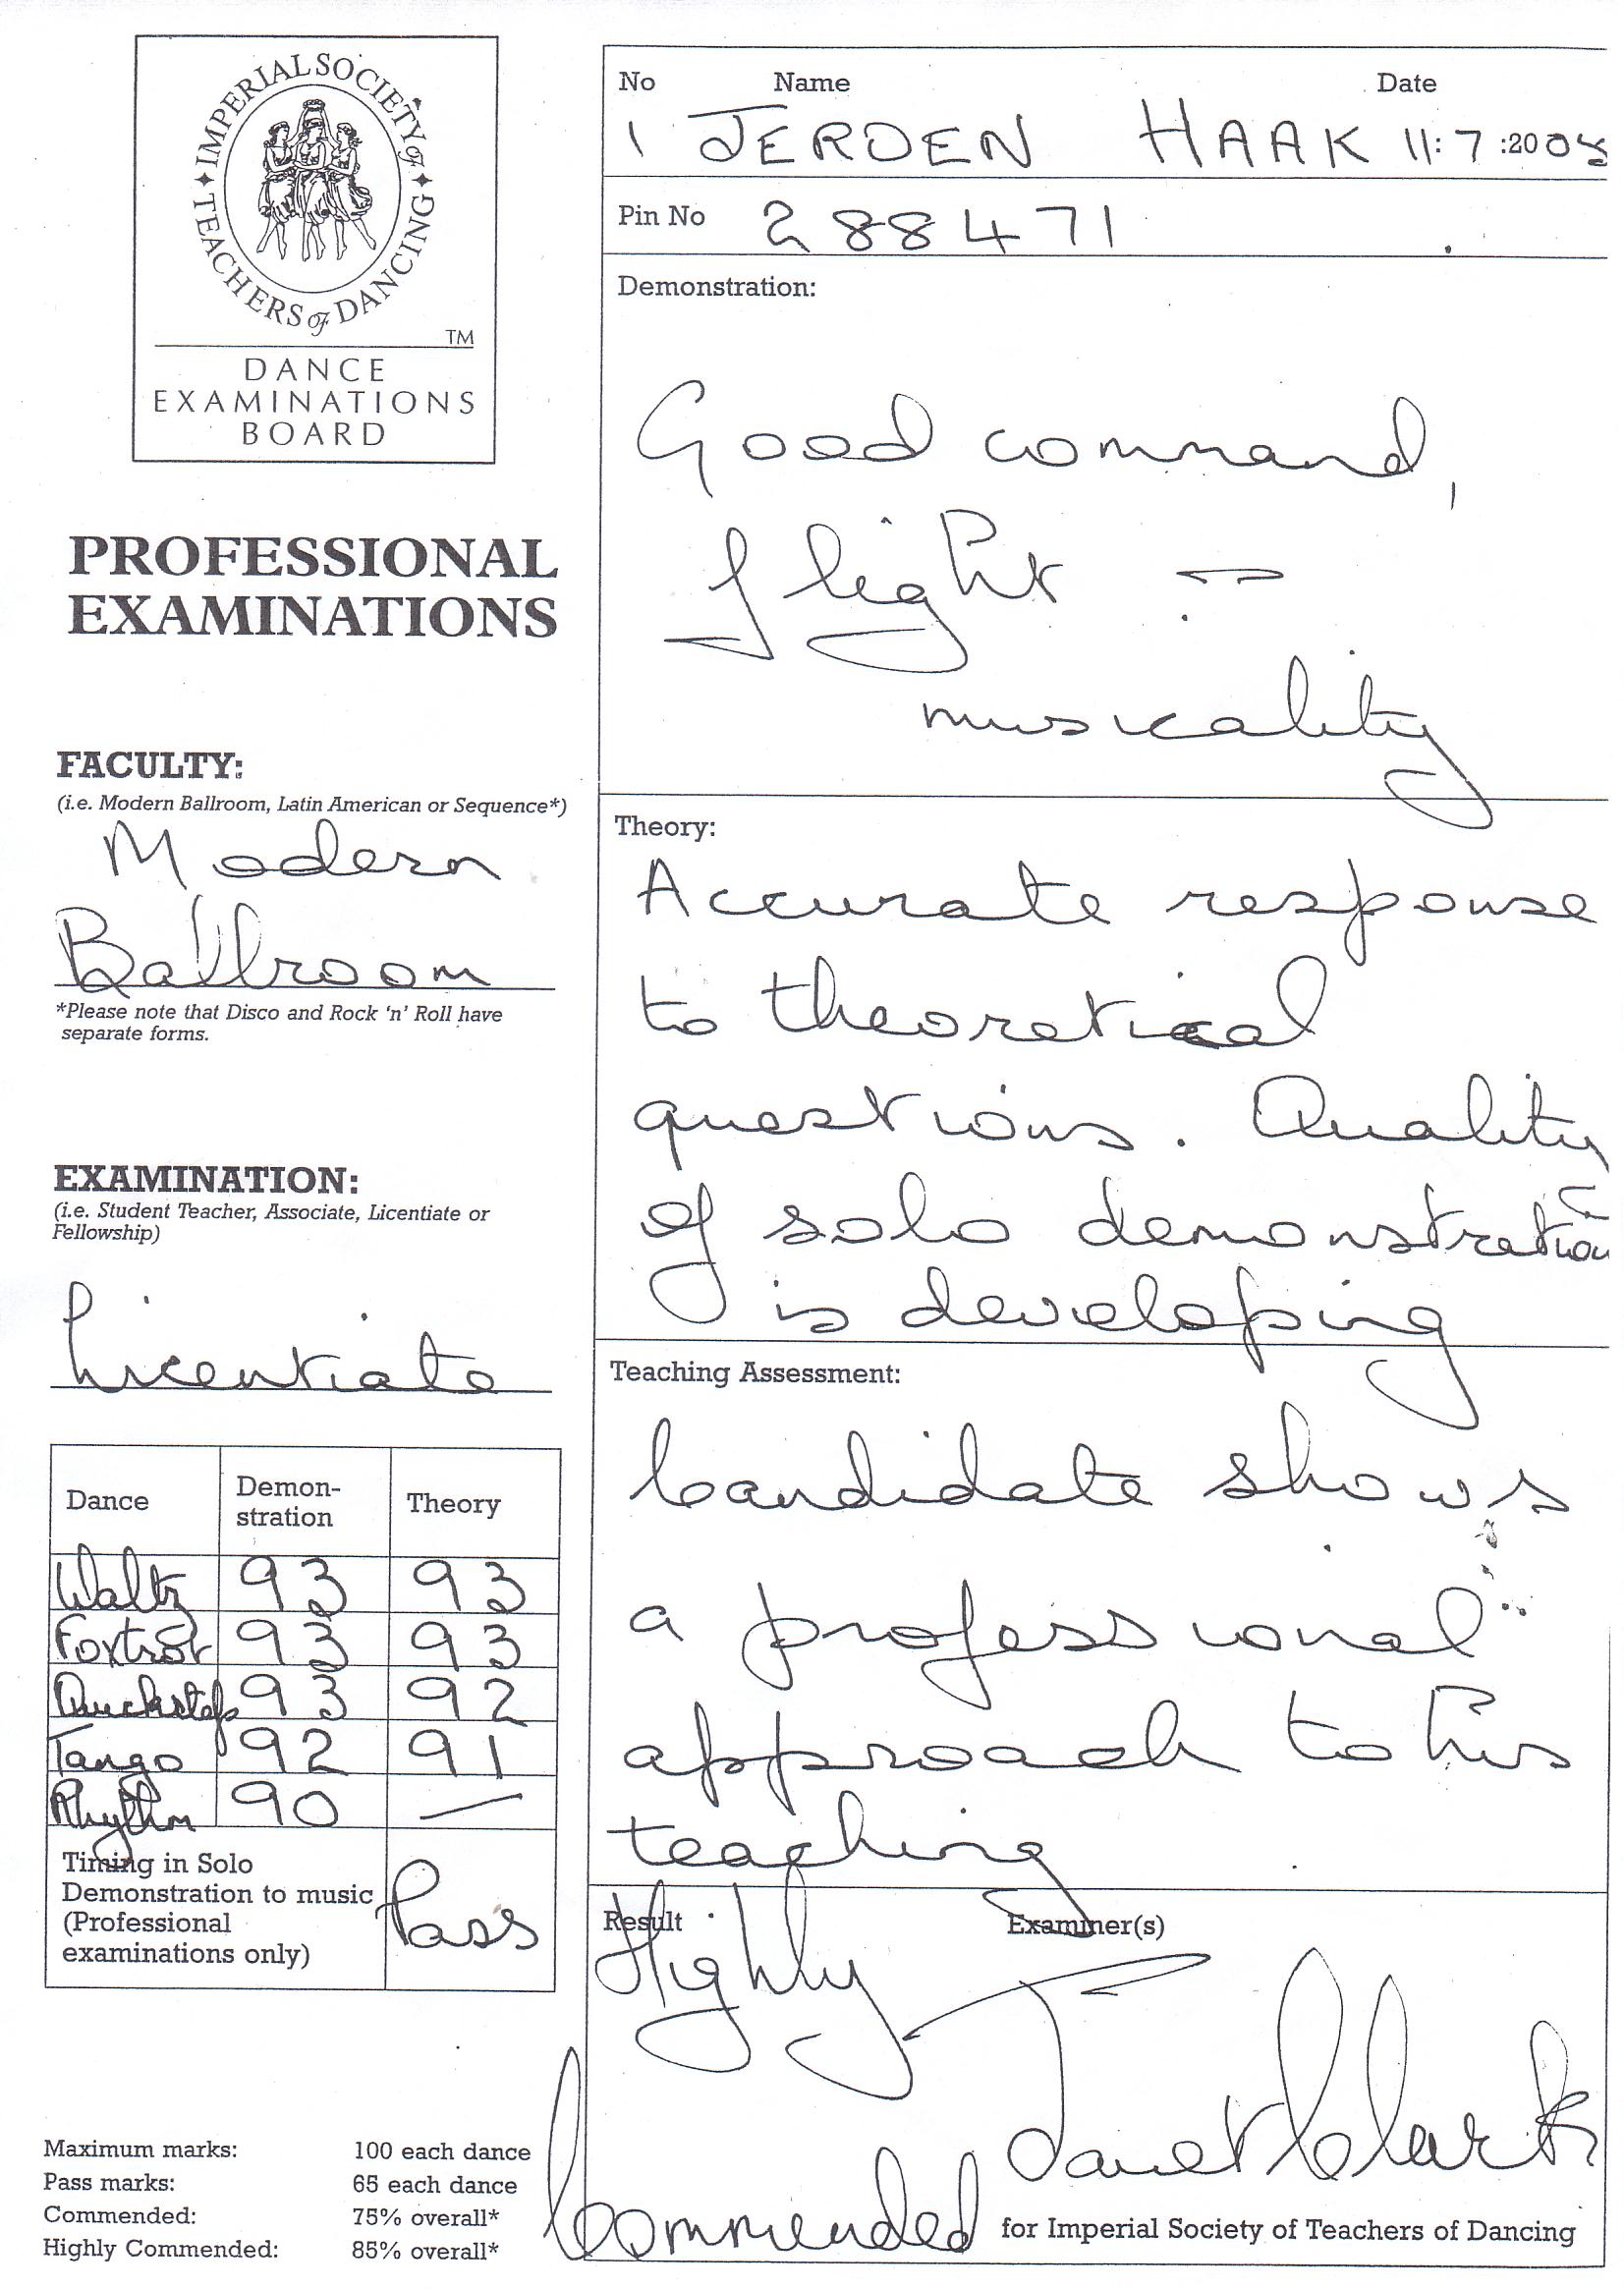 IMPERIAL SOCIETY of TEACHERS of DANCING
TM
DANCE
EXAMINATIONS
BOARD
PROFESSIONAL
EXAMINATIONS
FACULTY:
(i.e. Modern Ballroom, Latin American or Sequence*)
Modern
Ballroom
*Please note that Disco and Rock 'n' Roll have
separate forms.
EXAMINATION:
(i.e. Student Teacher, Associate, Licentiate or
Fellowship)
Licentiate
Dance Demon- Theory
stration
Waltz 93 93
Foxtrot 93 93
Quickstep 93 92
Tango 92 91
Rhythm 90 —
Timing in Solo
Demonstration to music
(Professional
examinations only)
Pass
Maximum marks: 100 each dance
Pass marks: 65 each dance
Commended: 75% overall*
Highly Commended: 85% overall*
No Name Date
1 JEROEN HAAK 11:7:2005
Pin No 288471
Demonstration:
Good command,
flight -
musicality
Theory:
Accurate response
to theoretical
questions. Quality
of solo demonstration
is developing
Teaching Assessment:
Candidate shows
a professional
approach to his
teaching
Result Examiner(s)
Highly
Commended
Janet Clark
for Imperial Society of Teachers of Dancing